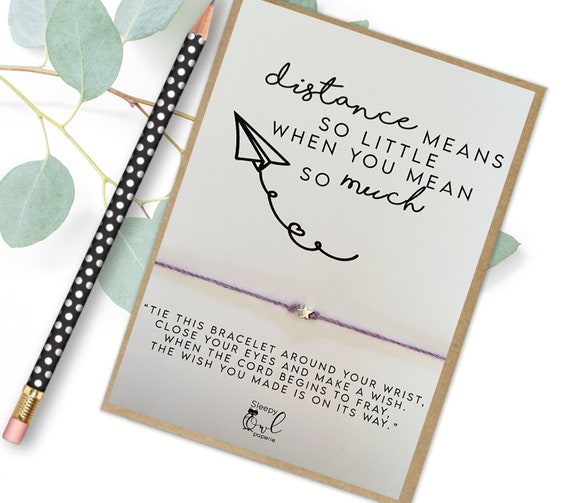 distance MEANS
SO LITTLE
WHEN YOU MEAN
SO much
"TIE THIS BRACELET AROUND YOUR WRIST,
CLOSE YOUR EYES AND MAKE A WISH.
WHEN THE CORD BEGINS TO FRAY,
THE WISH YOU MADE IS ON ITS WAY."
Sleepy
Owl
paperie